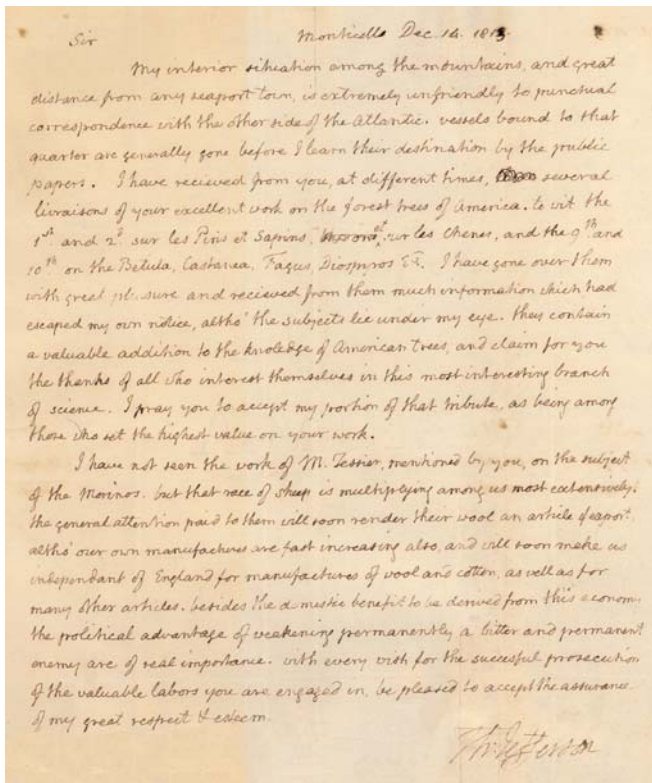 Sir Monticello Dec. 14. 1813.
My interior situation among the mountains, and great
distance from any seaport town, is extremely unfriendly to punctual
correspondence with the other side of the Atlantic. vessels bound to that
quarter are generally gone before I learn their destination by the public
papers. I have recieved from you, at different times, several
livraisons of your excellent work on the forest trees of America. to wit the
1st and 2d sur les Pins et Sapins, sur les Chenes, and the 9th and
10th on the Betula, Castanea, Fagus, Diospyros &c. I have gone over them
with great pleasure and recieved from them much information which had
escaped my own notice, altho' the subjects lie under my eye. they contain
a valuable addition to the knoledge of American trees, and claim for you
the thanks of all who interest themselves in this most interesting branch
of science. I pray you to accept my portion of that tribute, as being among
those who set the highest value on your work.
I have not seen the work of M. Tessier, mentioned by you, on the subject
of the Merinos. but that race of sheep is multiplying among us most extensively.
the general attention paid to them will soon render their wool an article of export,
altho' our own manufactures are fast increasing also, and will soon make us
independant of England for manufactures of wool and cotton, as well as for
many other articles. besides the domestic benefit to be derived from this economy
the political advantage of weakening permanently a bitter and permanent
enemy are of real importance. with every wish for the succesful prosecution
of the valuable labors you are engaged in, be pleased to accept the assurance
of my great respect & esteem.
Th: Jefferson